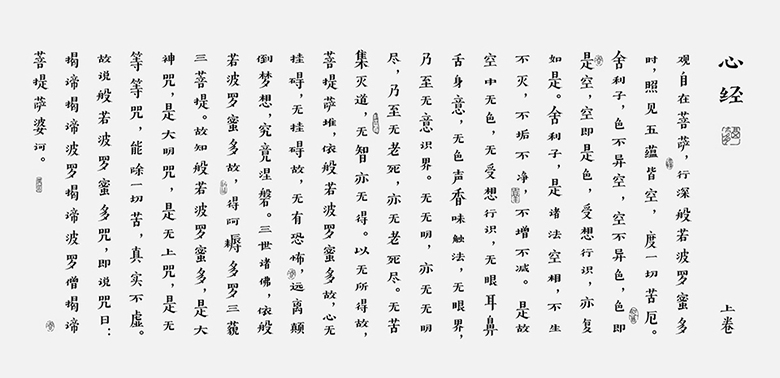 心经
上卷
观自在菩萨，行深般若波罗蜜多
时，照见五蕴皆空，度一切苦厄。
舍利子，色不异空，空不异色，色即
是空，空即是色，受想行识，亦复
如是。舍利子，是诸法空相，不生
不灭，不垢不净，不增不减。是故
空中无色，无受想行识，无眼耳鼻
舌身意，无色声香味触法，无眼界，
乃至无意识界。无无明，亦无无明
尽，乃至无老死，亦无老死尽。无苦
集灭道，无智亦无得。以无所得故，
菩提萨堆，依般若波罗蜜多故，心无
挂碍，无挂碍故，无有恐怖，远离颠
倒梦想，究竟涅磐。三世诸佛，依般
若波罗蜜多故，得阿耨多罗三藐
三菩提。故知般若波罗蜜多，是大
神咒，是大明咒，是无上咒，是无
等等咒，能除一切苦，真实不虚。
故说般若波罗蜜多咒，即说咒曰：
揭谛揭谛波罗揭谛波罗僧揭谛
菩提萨婆诃。